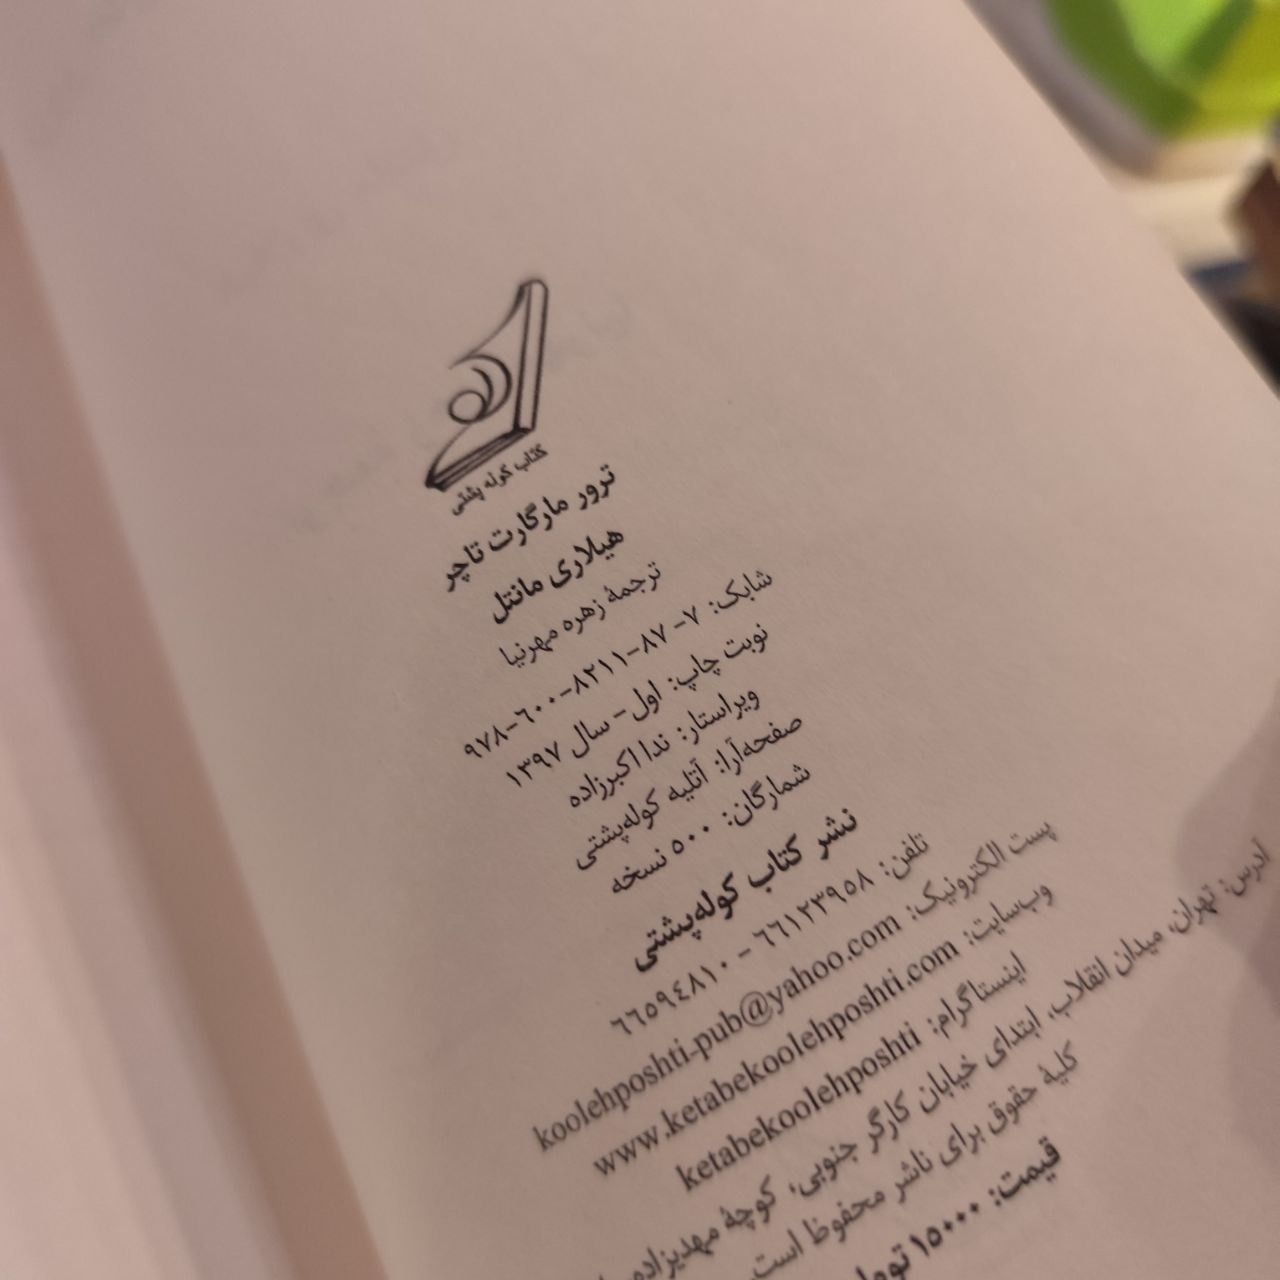 کتاب کوله پشتی
ترور مارگارت تاچر
هیلاری مانتل
ترجمهٔ زهره مهرنیا
شابک: ۷-۸۷-۸۲۱۱-۶۰۰-۹۷۸
نوبت چاپ: اول- سال ۱۳۹۷
ویراستار: ندا اکبرزاده
صفحه‌آرا: آتلیه کوله‌پشتی
شمارگان: ۵۰۰ نسخه
نشر کتاب کوله‌پشتی
تلفن: ۶۶۱۲۳۹۵۸ - ۶۶۵۹٤۸۱۰
پست الکترونیک: koolehposhti-pub@yahoo.com
وب‌سایت: www.ketabekoolehposhti.com
اینستاگرام: ketabekoolehposhti
آدرس: تهران، میدان انقلاب، ابتدای خیابان کارگر جنوبی، کوچهٔ مهدیزاده
کلیهٔ حقوق برای ناشر محفوظ است
قیمت: ۱۵۰۰۰